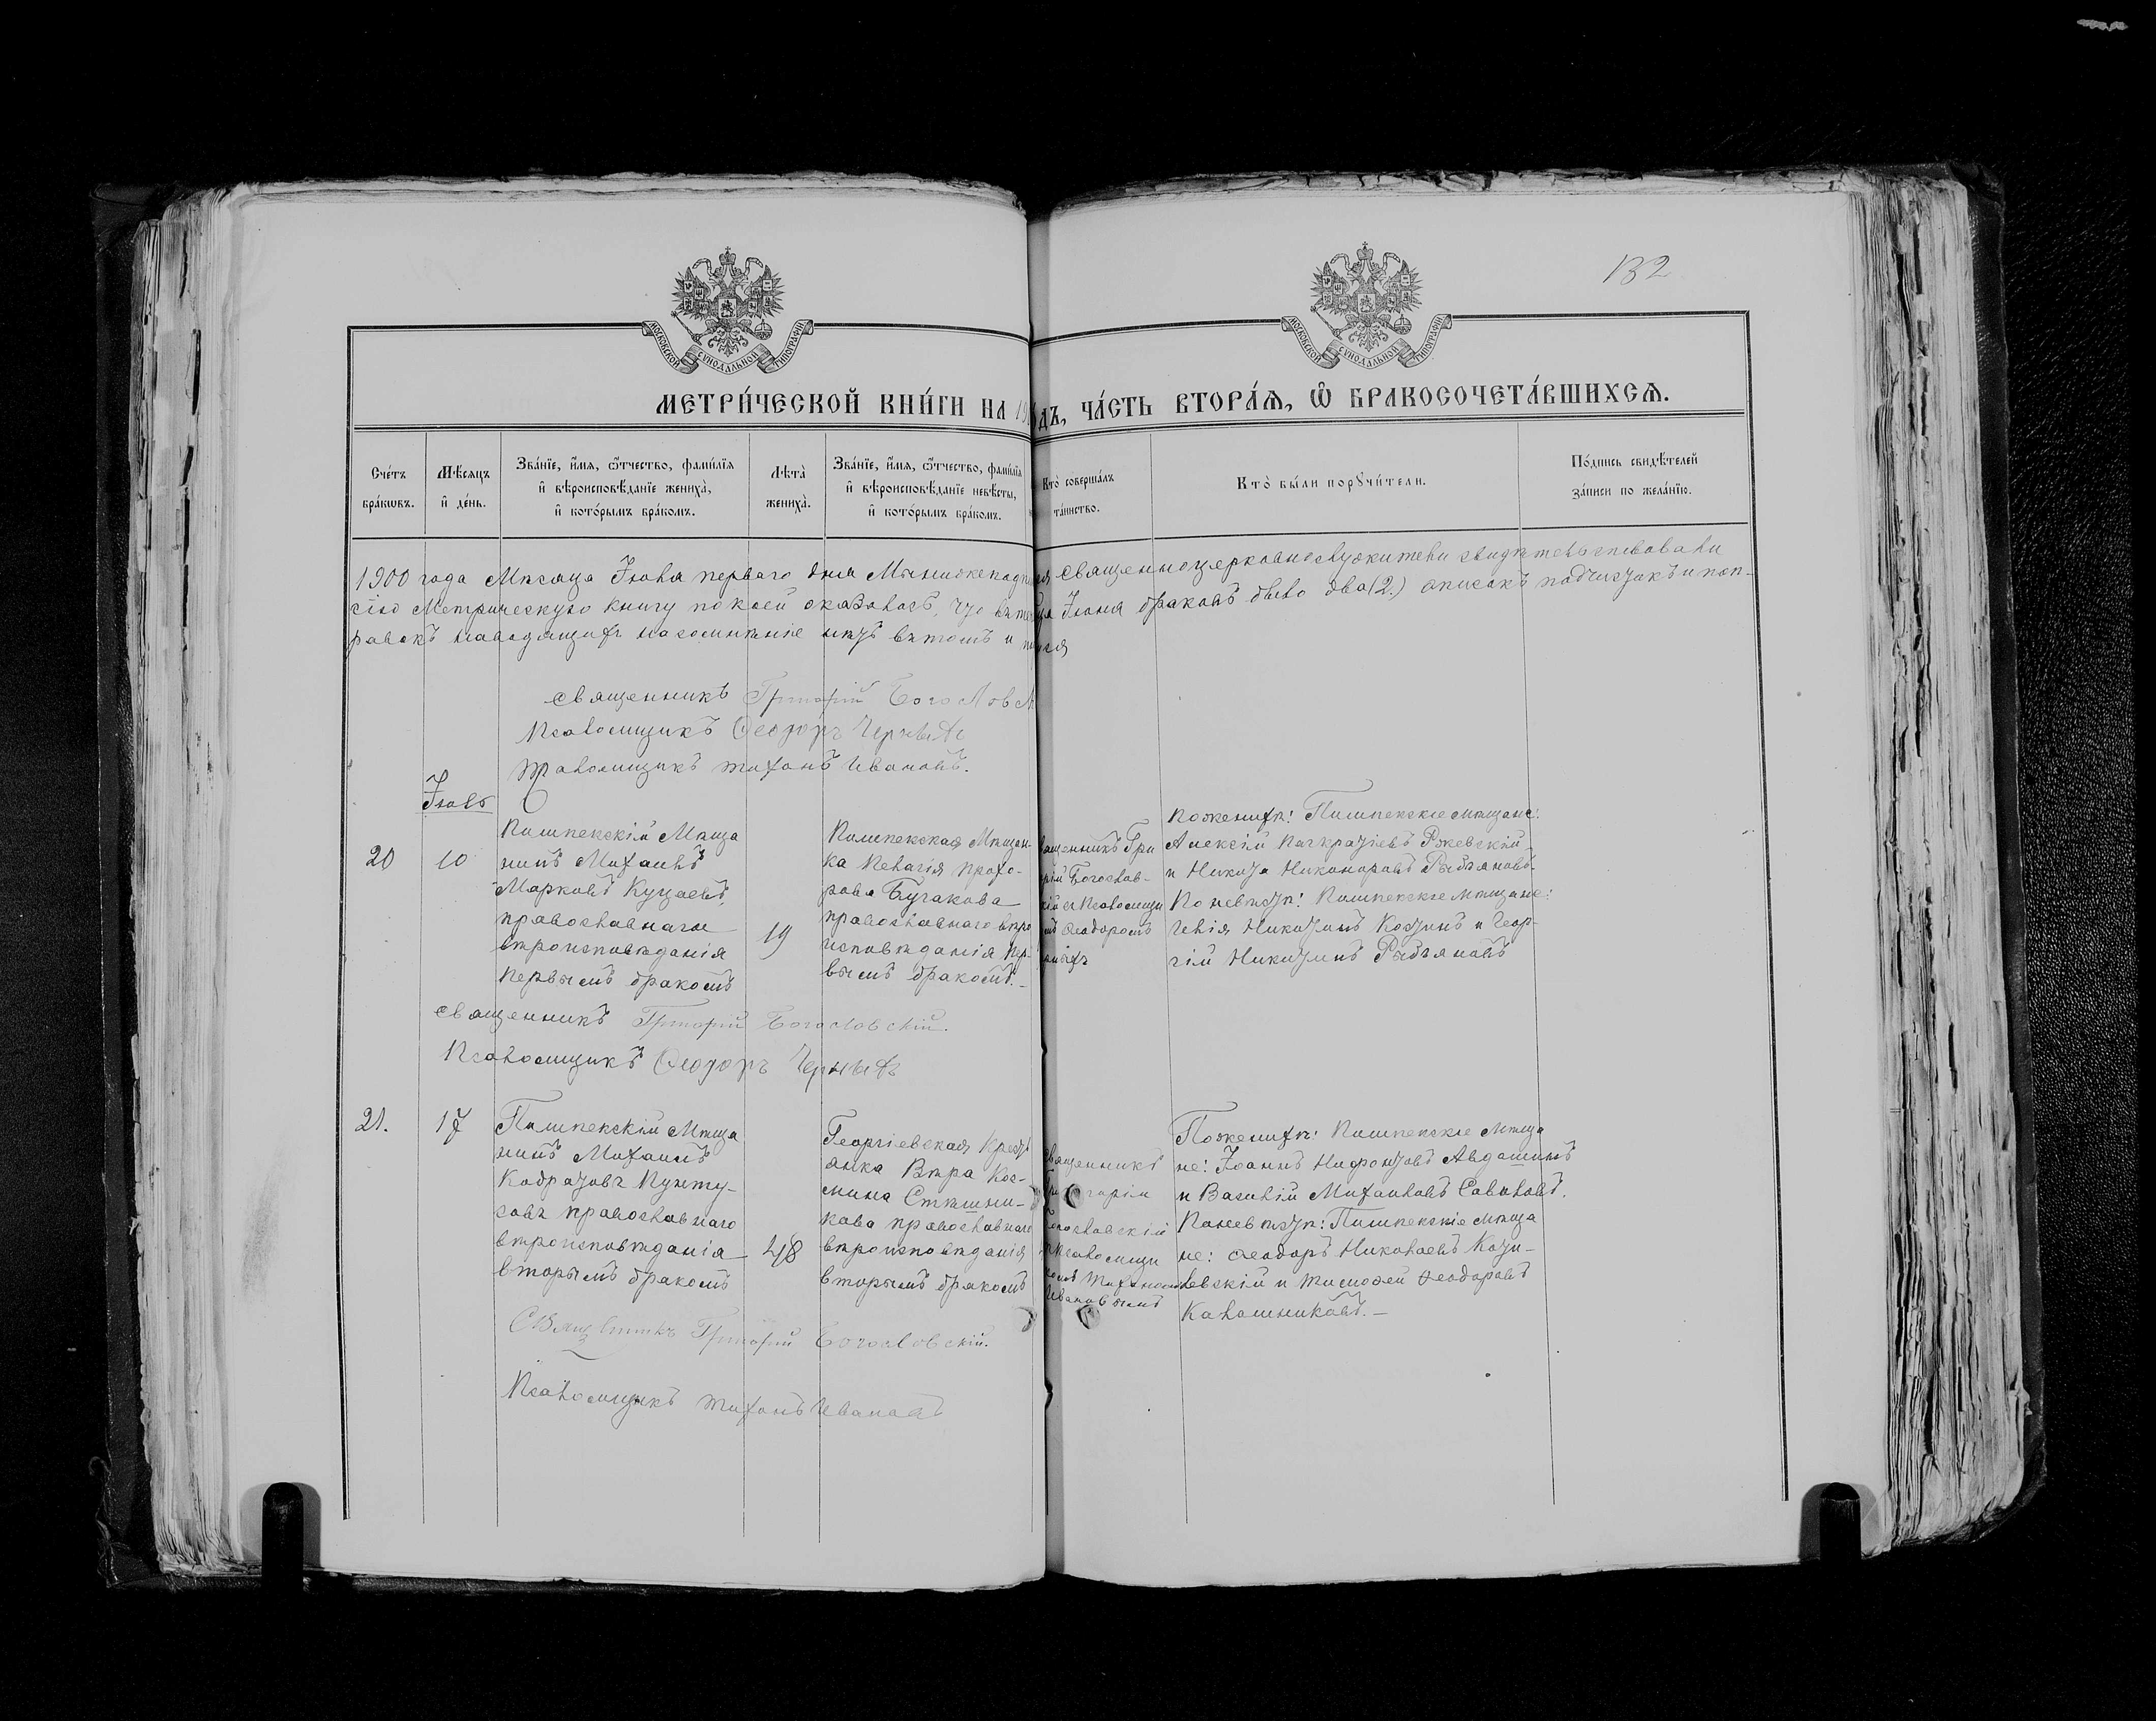 132
МОСКОВСКОЙ СѴНОДАЛЬНОЙ ТИПОГРАФІИ
МОСКОВСКОЙ СѴНОДАЛЬНОЙ ТИПОГРАФІИ
МЕТРИ́ЧЕСКОЙ КНИ́ГИ НА ЧА́СТЬ ВТОРА́Я, Ѡ БРАКОСОЧЕТА́ВШИХСЯ.
Сче́тъ
бра́кѡвъ.
Мѣ́сяцъ
и҆ де́нь.
Зва́нїе, и҆́мя, ѻ҆́тчество, фами́лїя
и҆ вѣроисповѣ́данїе жениха̀,
и҆ кото́рымъ бра́комъ.
Лѣта̀
жениха̀.
Зва́нїе, и҆́мя, ѻ҆́тчество, фами́лїя
и҆ вѣроисповѣ́данїе невѣ́сты,
и҆ кото́рымъ бра́комъ.
Кто̀ соверша́лъ
та́инство.
Кто̀ бы́ли порꙋчи́тели.
По́дпись свидѣ́телей
за́писи по жела́нїю.
1900 года Мѣсяца Іюня перваго дня Мы священноцерковнослужители свидѣтельствовали
сію Метрическую книгу по коей оказалось, что Іюня браковъ было два (2.) описокъ подчистокъ и поп-
равокъ наводящихъ на сомнѣніе нѣтъ въ томъ и
Священникъ Григорій
Псаломщикъ Ѳеодоръ Черныхъ
Псаломщикъ Тихонъ Ивановъ.
Іюль
20
10
Пишпекскій Мѣща
нинъ Михаилъ
Марковъ Куцаевъ,
православнаго
вѣроисповѣданія
первымъ бракомъ
19
Пишпекская Мѣщан-
ка Пелагія Прохо-
рова Бугакова
православнаго вѣро
исповѣданія пер-
вымъ бракомъ.-
Гри
Богослов-
Псаломщи
Ѳеодоромъ
По женихѣ: Пишпекскіе мѣщане:
Алексій Панкратіевъ Ржевскій
и Никита Никаноровъ Рыбъяновъ.
По невѣстѣ: Пишпекскіе мѣщане:
Никитинъ и Геор-
гій Никитинъ Рыбъяновъ
Священникъ Григорій Богословскій.
Псаломщикъ Ѳеодоръ Черныхъ
21.
17
Пишпекскій Мѣща
нинъ Михаилъ
Кодратовъ Пунту-
совъ православнаго
вѣроисповѣданія
вторымъ бракомъ
48
Георгіевская Кресть
янка Вѣра Кос-
мина
кова православнаго
вѣроисповѣданія
вторымъ бракомъ
Священникъ
Богословскій
Псаломщи
Тихономъ
Ивановымъ
По женихѣ: Пишпекскіе мѣща
не: Іоаннъ Нифонтовъ Авдошинъ
и Василій Михаиловъ Савиловъ.
По невѣстѣ: Пишпекскіе мѣща
не: Ѳеодоръ Николаевъ
и Тимоѳей Ѳеодоровъ
Калашниковъ.-
Священникъ Григорій Богословскій.
Псаломщикъ Тихонъ Ивановъ